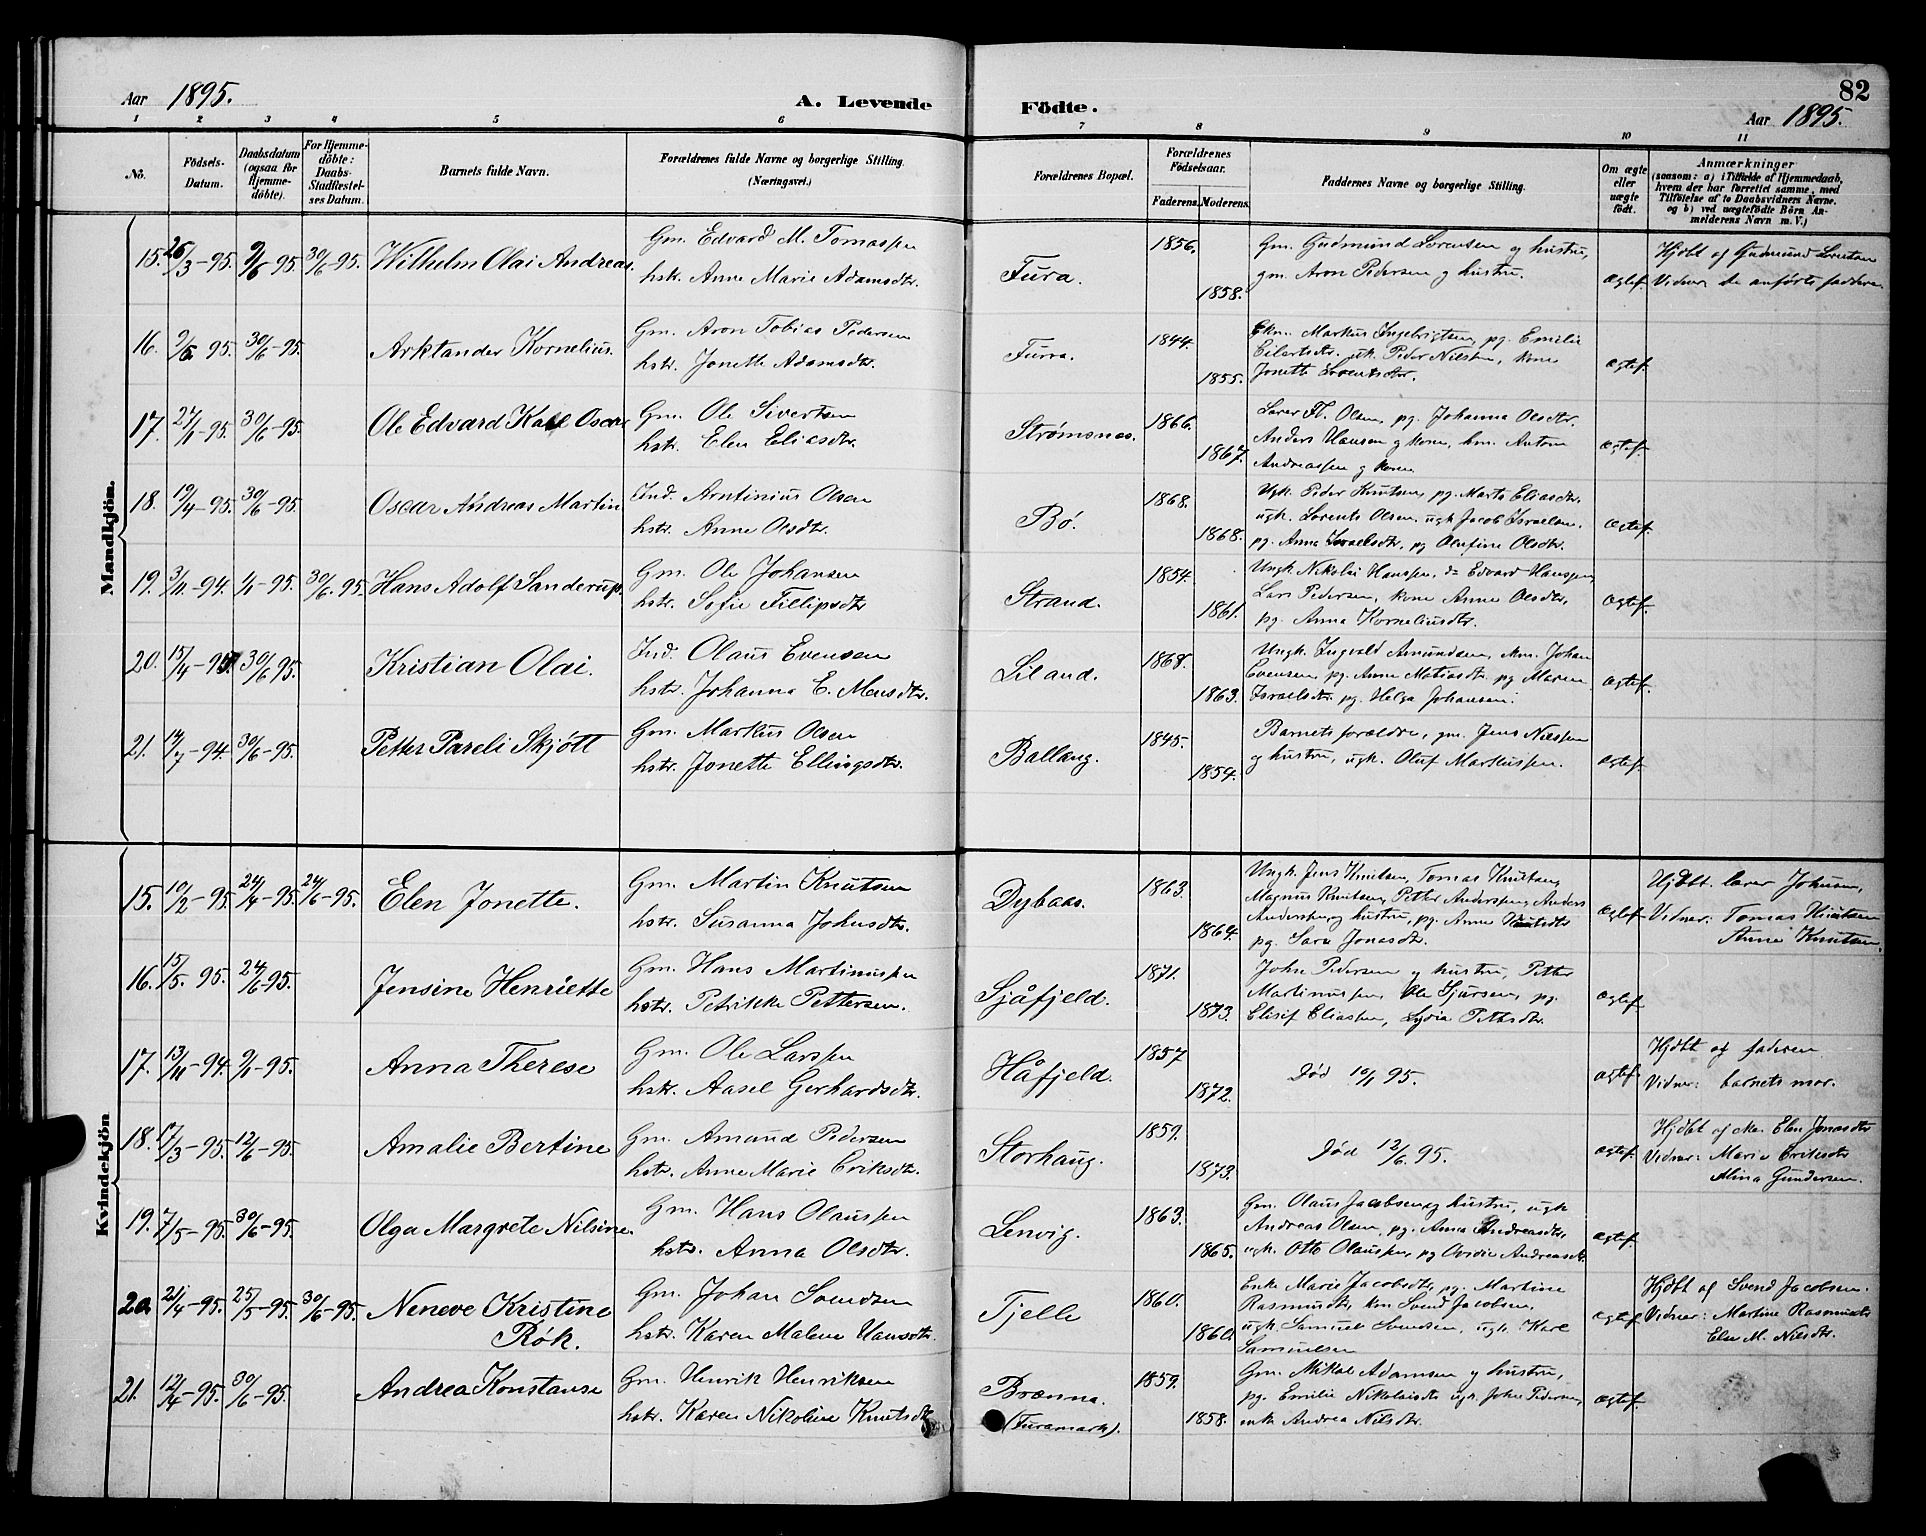 Aar 1895. A. Levende Födte. 82
Aar 1895.
1 2 3 4 5 6 7 8 9 10 11
No. Födsels-Datum. Daabsdatum (ogsaa for Hjemmedöbte). For Hjemmedöbte: Daabs-Stadfæstelses Datum. Barnets fulde Navn. Forældrenes fulde Navne og borgerlige Stilling. (Næringsvei.) Forældrenes Bopæl. Forældrenes Födselsaar. Faderens. Moderens. Faddernes Navne og borgerlige Stilling. Om ægte eller uægte födt. Anmærkninger (saasom: a) i Tilfælde af Hjemmedaab, hvem der har forrettet samme, med Tilföielse af to Daabsvidners Navne, og b) ved uægtefödte Börn Anmelderens Navn m. V.)
Mandkjön.
15. 26/3-95. 9/6-95. 30/6-95. Wilhelm Olai Andreas.
Gm. Edvard M. Tomassen
hstr. Anne Marie Adamsdtr.
Fura. 1856. 1858.
Gm. Gudmund Lorensen og hustru,
gm. Aron Pedersen og hustru.
ægtef.
Hjdbt af Gudmund Lorentsen
Vidner: de anførte faddere.
16. 9/5 95. 30/6-95. Arktander Kornelius.
Gm. Aron Tobias Pedersen
hstr. Jonette Adamsdtr.
Furra. 1844. 1855.
Ekm. Markus Ingebrigtsen, pg. Emilie
Eilertsdtr. uk. Peder Nilsen, kone
Jonette Lorentsdtr.
ægtef.
17. 27/1-95. 30/6-95. Ole Edvard Karl Oscar.
Gm. Ole Sivertsen
hstr. Elen Eliasdtr.
Strømsnes. 1866. 1867.
Lærer Fl. Olsen, pg. Johanna Olsdtr.
Anders Hansen og kone, km. Anton
Andreassen og kone
ægtef.
18. 19/4-95. 30/6-95. Oscar Andreas Martin
Ind. Arntinius Olsen
hstr. Anne Olsdtr.
Bø. 1868. 1868.
Ugk. Peder Knutsen, pg. Marta Eliasdtr.
ugk. Lorents Olsen. ugk Jacob Israelsen.
pg. Anna Israelsdtr, pg Olufine Olsdtr.
ægtef.
19. 3/11-94. 1/1-95. 30/6.95. Hans Adolf Sanderup.
Gm. Ole Johansen
hstr. Sofie Fillipsdtr
Strand. 1854. 1861.
Ungk. Nikolai Hanssen, do Edvard Hanssen,
Lars Pedersen, kone Anne Olsdtr,
pg. Anna Korneliusdtr.
ægtef.
20. 15/4-95. 30/6-95. Kristian Olai.
Ind. Olaus Evensen
hstr. Johanna E. Monsdtr.
Liland. 1868. 1863.
Ungk. Ingvald Amundsen, km. Johan
Evensen, pg. Anne Matiasdtr. pg Maren
Israelsdtr. pg. Helga Johansen.
ægtef.
21. 14/7-94. 30/6-95. Petter Pareli Skjøtt
Gm. Markus Olsen
hstr. Jonette Ellingsdtr.
Ballang. 1845. 1854.
Barnets forældre, gm. Jens Nilssen
og hustru, ugk. Oluf Markussen.
ægtef.
Kvindekjön
15. 10/2-95. 24/4-95. 24/6-95. Elen Jonette.
Gm. Martin Knutsen
hstr. Susanna Johnsdtr.
Dybaas. 1863. 1864.
Ungk. Jens Knutsen, Tomas Knutsen,
Magnus Knutsen, Petter Anderssen, Anders
Anderssen og hustru, pg. Anne Knutsdtr
pg. Sara Jonasdtr.
ægtef.
Hjdbt. lærer Johnsen,
Vidner: Tomas Knutsen
Anna Knutsen.
16. 15/5. 95. 24/6-95. Jensine Henriette
Gm. Hans Martinussen
hstr. Petrikke Pettersen.
Sjåfjeld. 1871. 1873.
John Pedersen og hustru, Petter
Martinussen, Ole Sjursen, pg.
Elisif Eliassen, Lydia Petersdtr.
ægtef.
17. 13/11-94. 9/1-95. Anna Therese
Gm. Ole Larssen
hstr. Aasel Gerhardsdtr.
Håfjeld. 1857 1872.
Død 10/1 95.
ægtef.
Hjdbt af faderen
Vidner: barnets mor.
18. 17/3-95. 12/6-95. Amalie Bertine
Gm. Amand Pedersen
hstr. Anne Marie Eriksdtr.
Storhaug. 1859. 1873.
Død 12/6. 95.
ægtef.
Hjdbt af ke. Elen Jonasdtr
Vidner: Marie Eriksdtr
Alina Gundersen.
19. 7/5-95. 30/6-95. Olga Margrete Nilsine.
Gm. Hans Olaussen
hstr. Anna Olsdtr.
Lenvig. 1863. 1865.
Gm. Olaus Jacobsen og hustru, ugk
Andreas Olsen, pg. Anna Andreasdtr,
ugk. Otto Olaussen, pg Ovidie Andreasdtr
ægtef.
20. 21/4-95. 25/5-95. 30/6-95. Neneve Kristine
Røk.
Gm. Johan Svendsen
hstr. Karen Malene Hansdtr.
Tjelle 1860. 1860.
Enke Marie Jacobsdtr, pg. Martine
Rasmusdtr, km Svend Jacobsen,
ugk. Samuel Svendsen, ugk. Karl
Samuelsen
ægtef.
Hjdbt af Svend Jacobsen.
Vidner: Martine Rasmusdtr
Elen M. Nilsdtr.
21. 12/4-95. 30/6-95. Andrea Konstanse
Gm. Henrik Henriksen
hstr. Karen Nikoline Knutsdtr
Brænna.
(Furamark). 1859. 1858.
Gm. Mikal Adamsen og hustru,
pg. Emilie Nikolaisdtr ugk. John Pedersen,
enk. Andrea Nilsdtr.
ægtef.